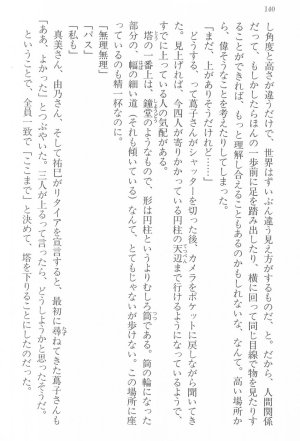 140
し角度と高さが違うだけで、世界はずいぶん違う見え方がするものだ、と。だから、人間関係
ももう一歩前に足を踏み出したり、横に回って同じ目線で物を見たりす
ることができれば、もっと理解し合えることもあるのかもしれない、なんて。高い場所か
ら、偉そうなことを考えたりしてしまった。
「まだ、上がありそうだけれど……」
どうする、って蔦子さんがシャッターを切った後、カメラをポケットに戻しながら聞いてき
た。見上げれば、今四人が寄りかかっている円柱の天辺まで行けるようになっているようで、
さっきから上にいる人の気配がある。
塔の一番上は、鐘堂のようなもので、形は円柱というよりむしろ筒である。筒の輪になった
部分の、幅の細い道(それも傾いている)なんて、とてもじゃないが歩けない。この場所に座
っているのも精一杯なのに。
「無理無理」
「パス」
「私も」
真美さん、由乃さん、そして祐巳がリタイアを宣言すると、最初に尋ねてきた蔦子さんも
「ああ、よかった」とつぶやいた。三人が上るって言ったら、どうしようかと思ったそうだ。
ということで、全員一致で「ここまで」と決めて、塔を下りることにしたのだった。